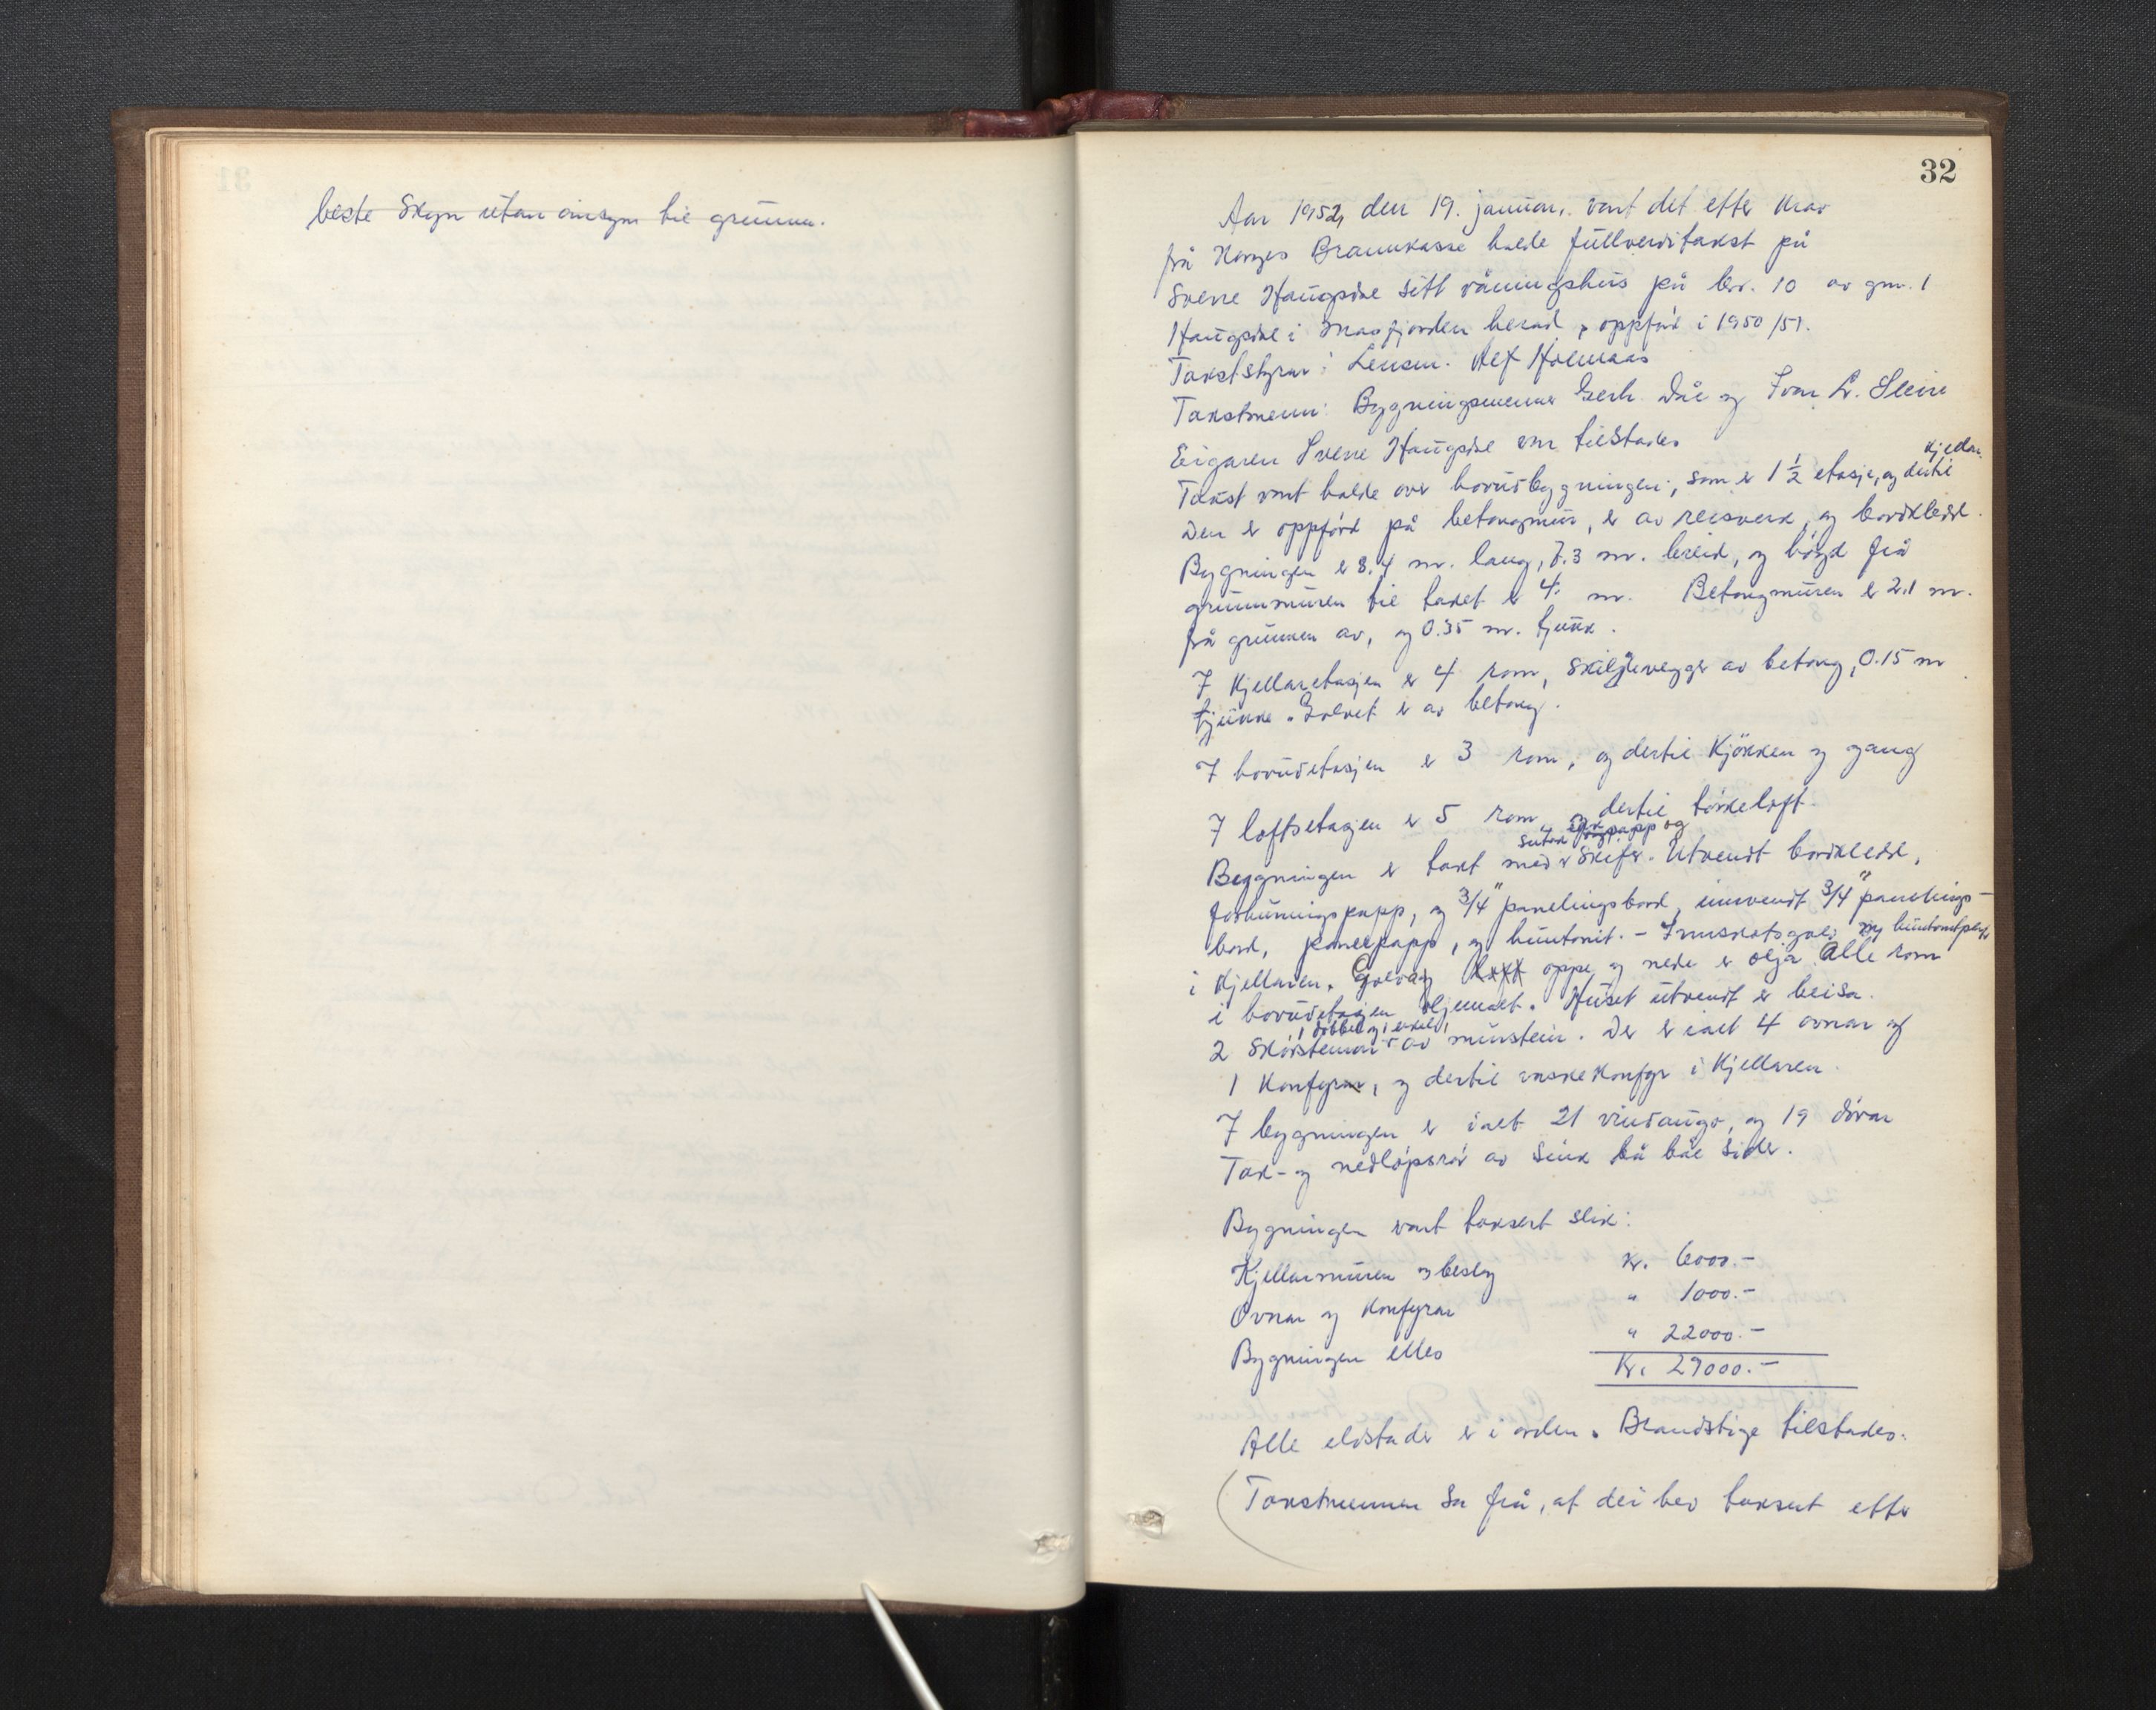 beste Skyn utan omsyn til grunnen.
32
Aar 1952, den 19. januar. vart det etter krav
frå Norges Brannkasse halde fullverditakst på
Sverre Haugsdal sitt våningshus på br. 10 av gnr. 1
Haugsdal i Masfjorden herad, oppført i 1950/51.
Takststyrar: Lensm. Alf Holmaas
Takstmenn: Bygningsmenner Gerh. Dåe og Ivar L. Sleire
Eigaren Sverre Haugsdal var tilstades
kjellar.
Takst vart halde over hovudbygningen, som er 1 1/2 etasje, og dertil
Den er oppförd på betongmur, er av reisverk, og bordkledd.
Bygningen er 8.4 m. lang, 7.3 m. breid, og högd frå
grunnmuren til taket er 4. m. Betongmuren er 2.1 m.
frå grunnen av, og 0.35 m. tjukk.
I Kjellaretasjen er 4 rom, skiljevegger av betong, 0.15 m
tjukke. Golvet er av betong.
I hovudetasjen er 3 rom, og dertil Kjökken og gang
I loftsetasjen er 5 rom, og dertil törkeloft.
Sutak papp og
Bygningen er takt med Skifer. Utvendt bordkledd,
forhudningspapp, og 3/4" panelingsbord, innvendt 3/4" panelings-
bord, panelpapp, og huntonit. - Innskotsgolv og huntonitplater
i Kjellaren. Golv oppe og nede er olja. Alle rom
i hovudetasjen oljemalt. Huset utvendt er beisa.
1 dobbel og 1 enkel,
2 Skorsteinar av murstein. Der er ialt 4 ovnar og
1 Komfyr, og dertil vaskekomfyr i Kjellaren.
I bygningen er ialt 21 vindaugo, og 19 dörar
Tak- og nedlöpsrör av Sink på båe sider.
Bygningen vart taksert slik:
Kjellarmuren og beslag Kr. 6000.-
Ovnar og Komfyrar " 1000.-
Bygningen elles " 22000.-
Kr. 29000.-
Alle eldstader er i orden. Brandstige tilstades.
Takstmennene sa frå, at dei hev taksert etter